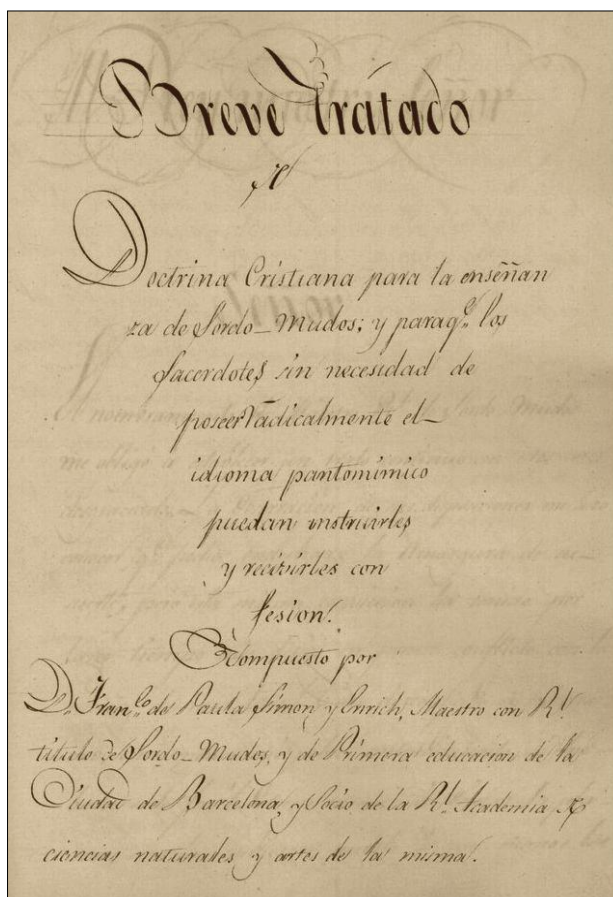 Breve tratado
de
Doctrina Cristiana para la enseñan
za de Sordo-Mudos; y paraq.e los
Sacerdotes sin necesidad de
poseer radicalmente el
idioma pantomímico
puedan instruirles
y recibirles con
fesion.
Compuesto por
D. Fran.co de Paula Simon y Enrich, Maestro con R.l
título de Sordo-Mudos, y de Primera educacion de la
Ciudad de Barcelona, y Socio de la R.l Academia de
ciencias naturales y artes de la misma.